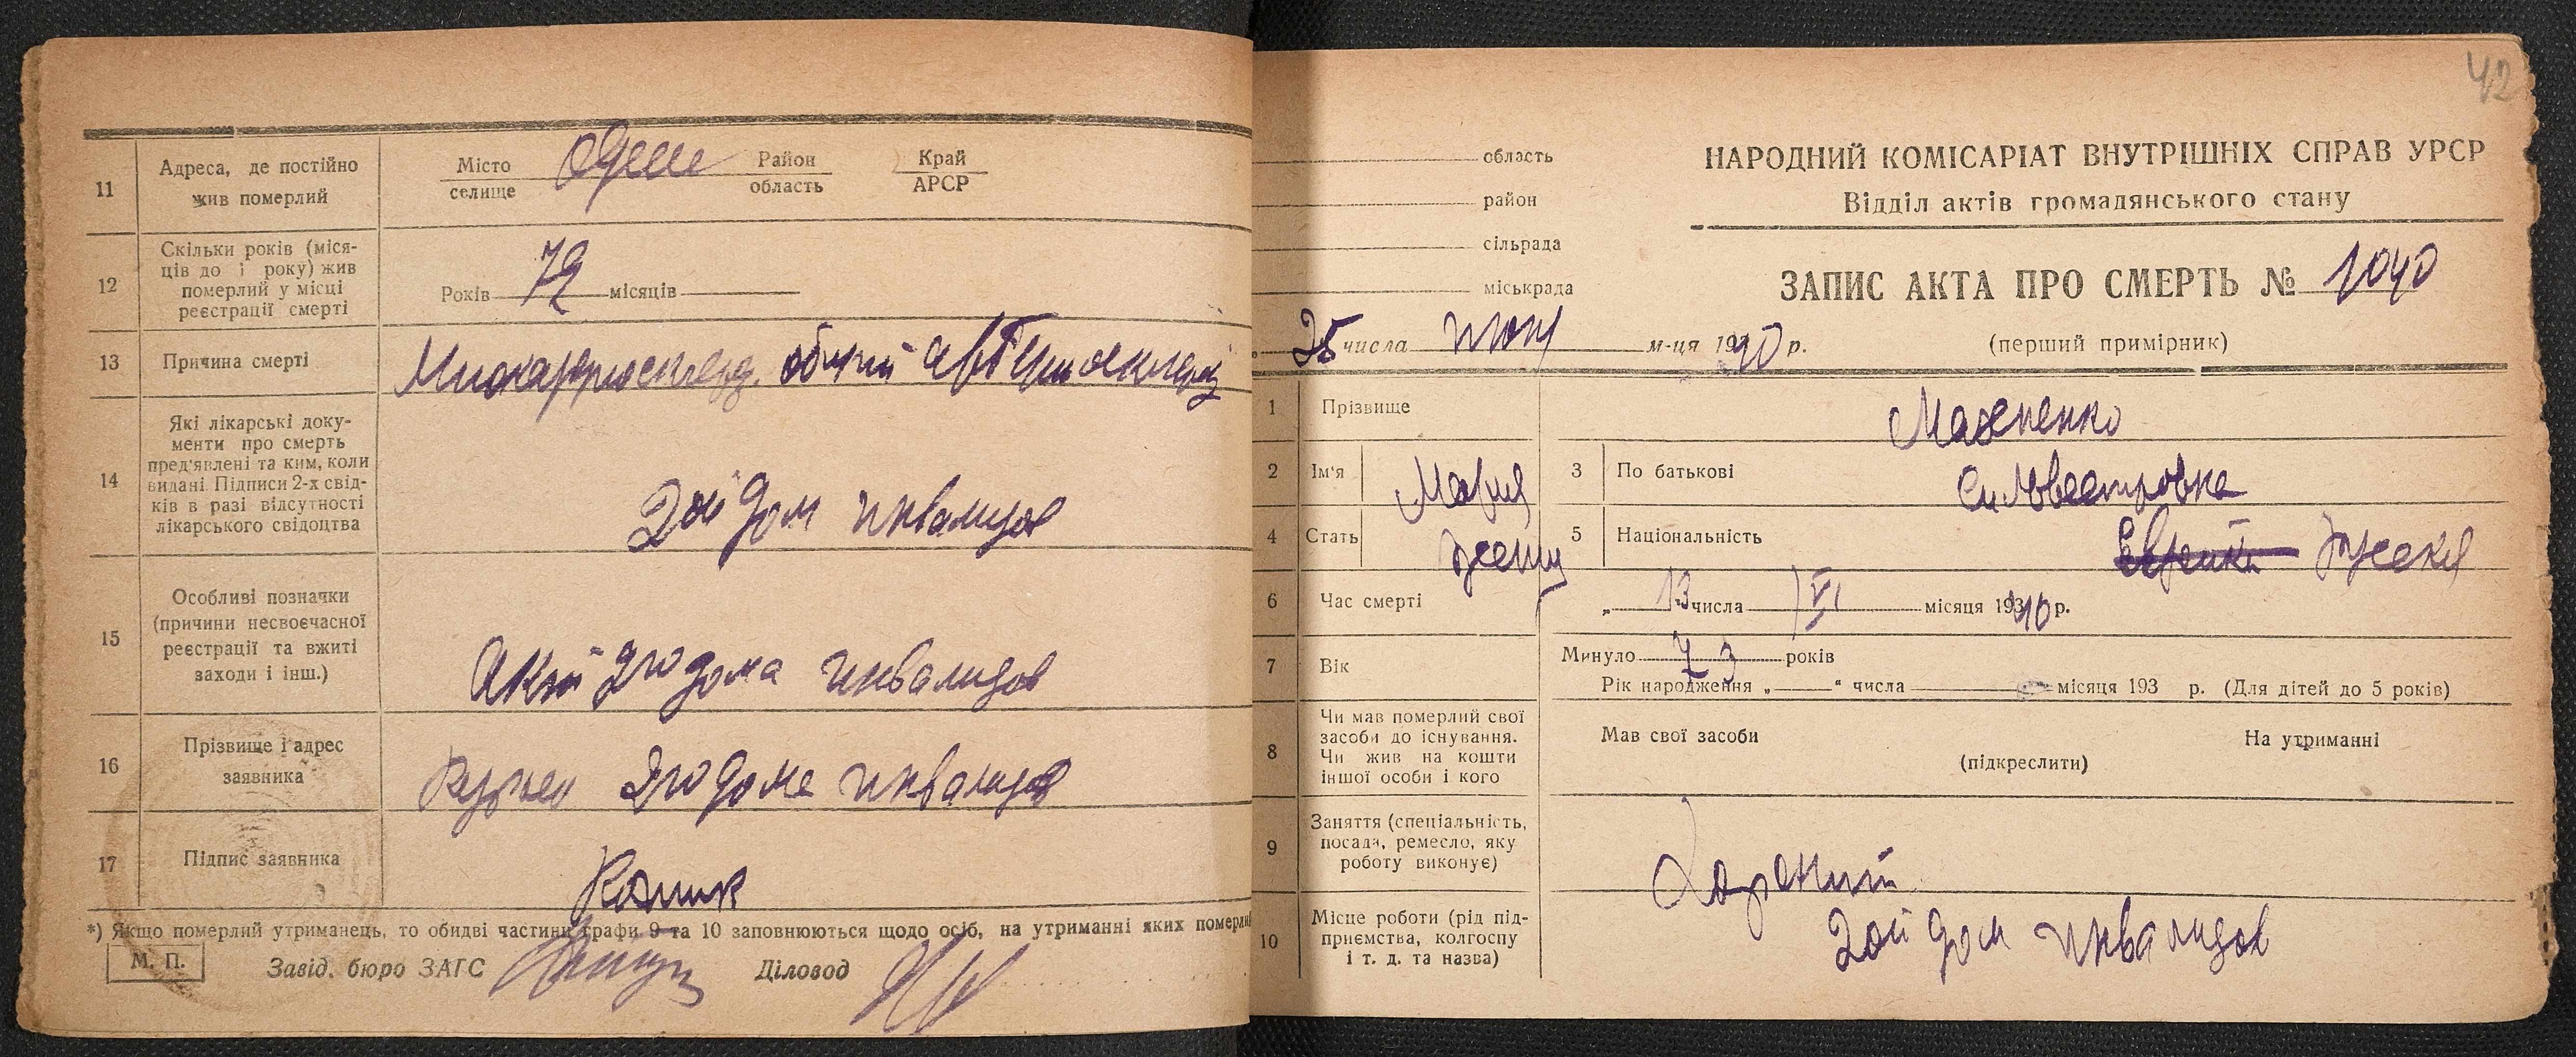 11
Адреса, де постійно
жив померлий
Місто
селище
Одесс
Район
область
Край
АРСР
12
Скільки років (міся-
ців до 1 року) жив
померлий у місці
реєстрації смерті
Років 72 місяців
13
Причина смерті
общий
14
Які лікарські доку-
менти про смерть
пред'явлені та ким, коли
видані. Підписи 2-х свід-
ків в разі відсутності
лікарського свідоцтва
2ой Дом инвалидов
15
Особливі позначки
(причини несвоєчасної
реєстрації та вжиті
заходи і інш.)
2го дома инвалидов
16
Прізвище і адрес
заявника
2го дома инвалидов
17
Підпис заявника
*) Якщо померлий утриманець, то обидві частини графи 9 та 10 заповнюються щодо осіб, на утриманні яких помер
М. П.
Завід. бюро ЗАГС
Діловод
42
область
район
сільрада
міськрада
НАРОДНИЙ КОМІСАРІАТ ВНУТРІШНІХ СПРАВ УРСР
Відділ актів громадянського стану
ЗАПИС АКТА ПРО СМЕРТЬ № 1040
(перший примірник)
25 числа июня м-ця 1940 р.
1
Прізвище
2
Ім'я
Мария
3
По батькові
Сильвестровна
4
Стать
женщ
5
Національність
Еврейка
6
Час смерті
„ 13 числа VI місяця 1940 р.
7
Вік
Минуло 73 років
Рік народження „ “ числа місяця 193 р. (Для дітей до 5 років)
8
Чи мав померлий свої
засоби до існування.
Чи жив на кошти
іншої особи і кого
Мав свої засоби
На утриманні
(підкреслити)
9
Заняття (спеціальність,
посада, ремесло, яку
роботу виконує)
10
Місце роботи (рід під-
приємства, колгоспу
і т. д. та назва)
2ой Дом инвалидов